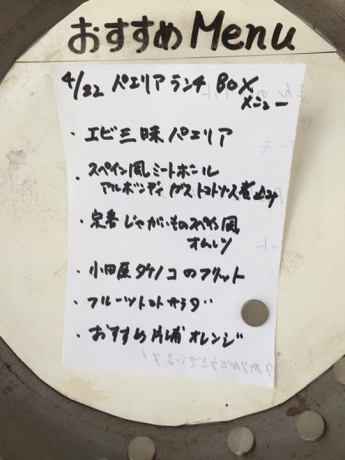 おすすめ Menu
4/22 パエリアランチ BOX
メニュー
・エビ三昧パエリア
・スペイン風ミートボール
アルボンディガス トマトソース煮込み
・定番じゃがいものスペイン風
オムレツ
・小田原タケノコのフリット
・フルーツトマトサラダ
・おすすめ片浦オレンジ
ありがとうございます!